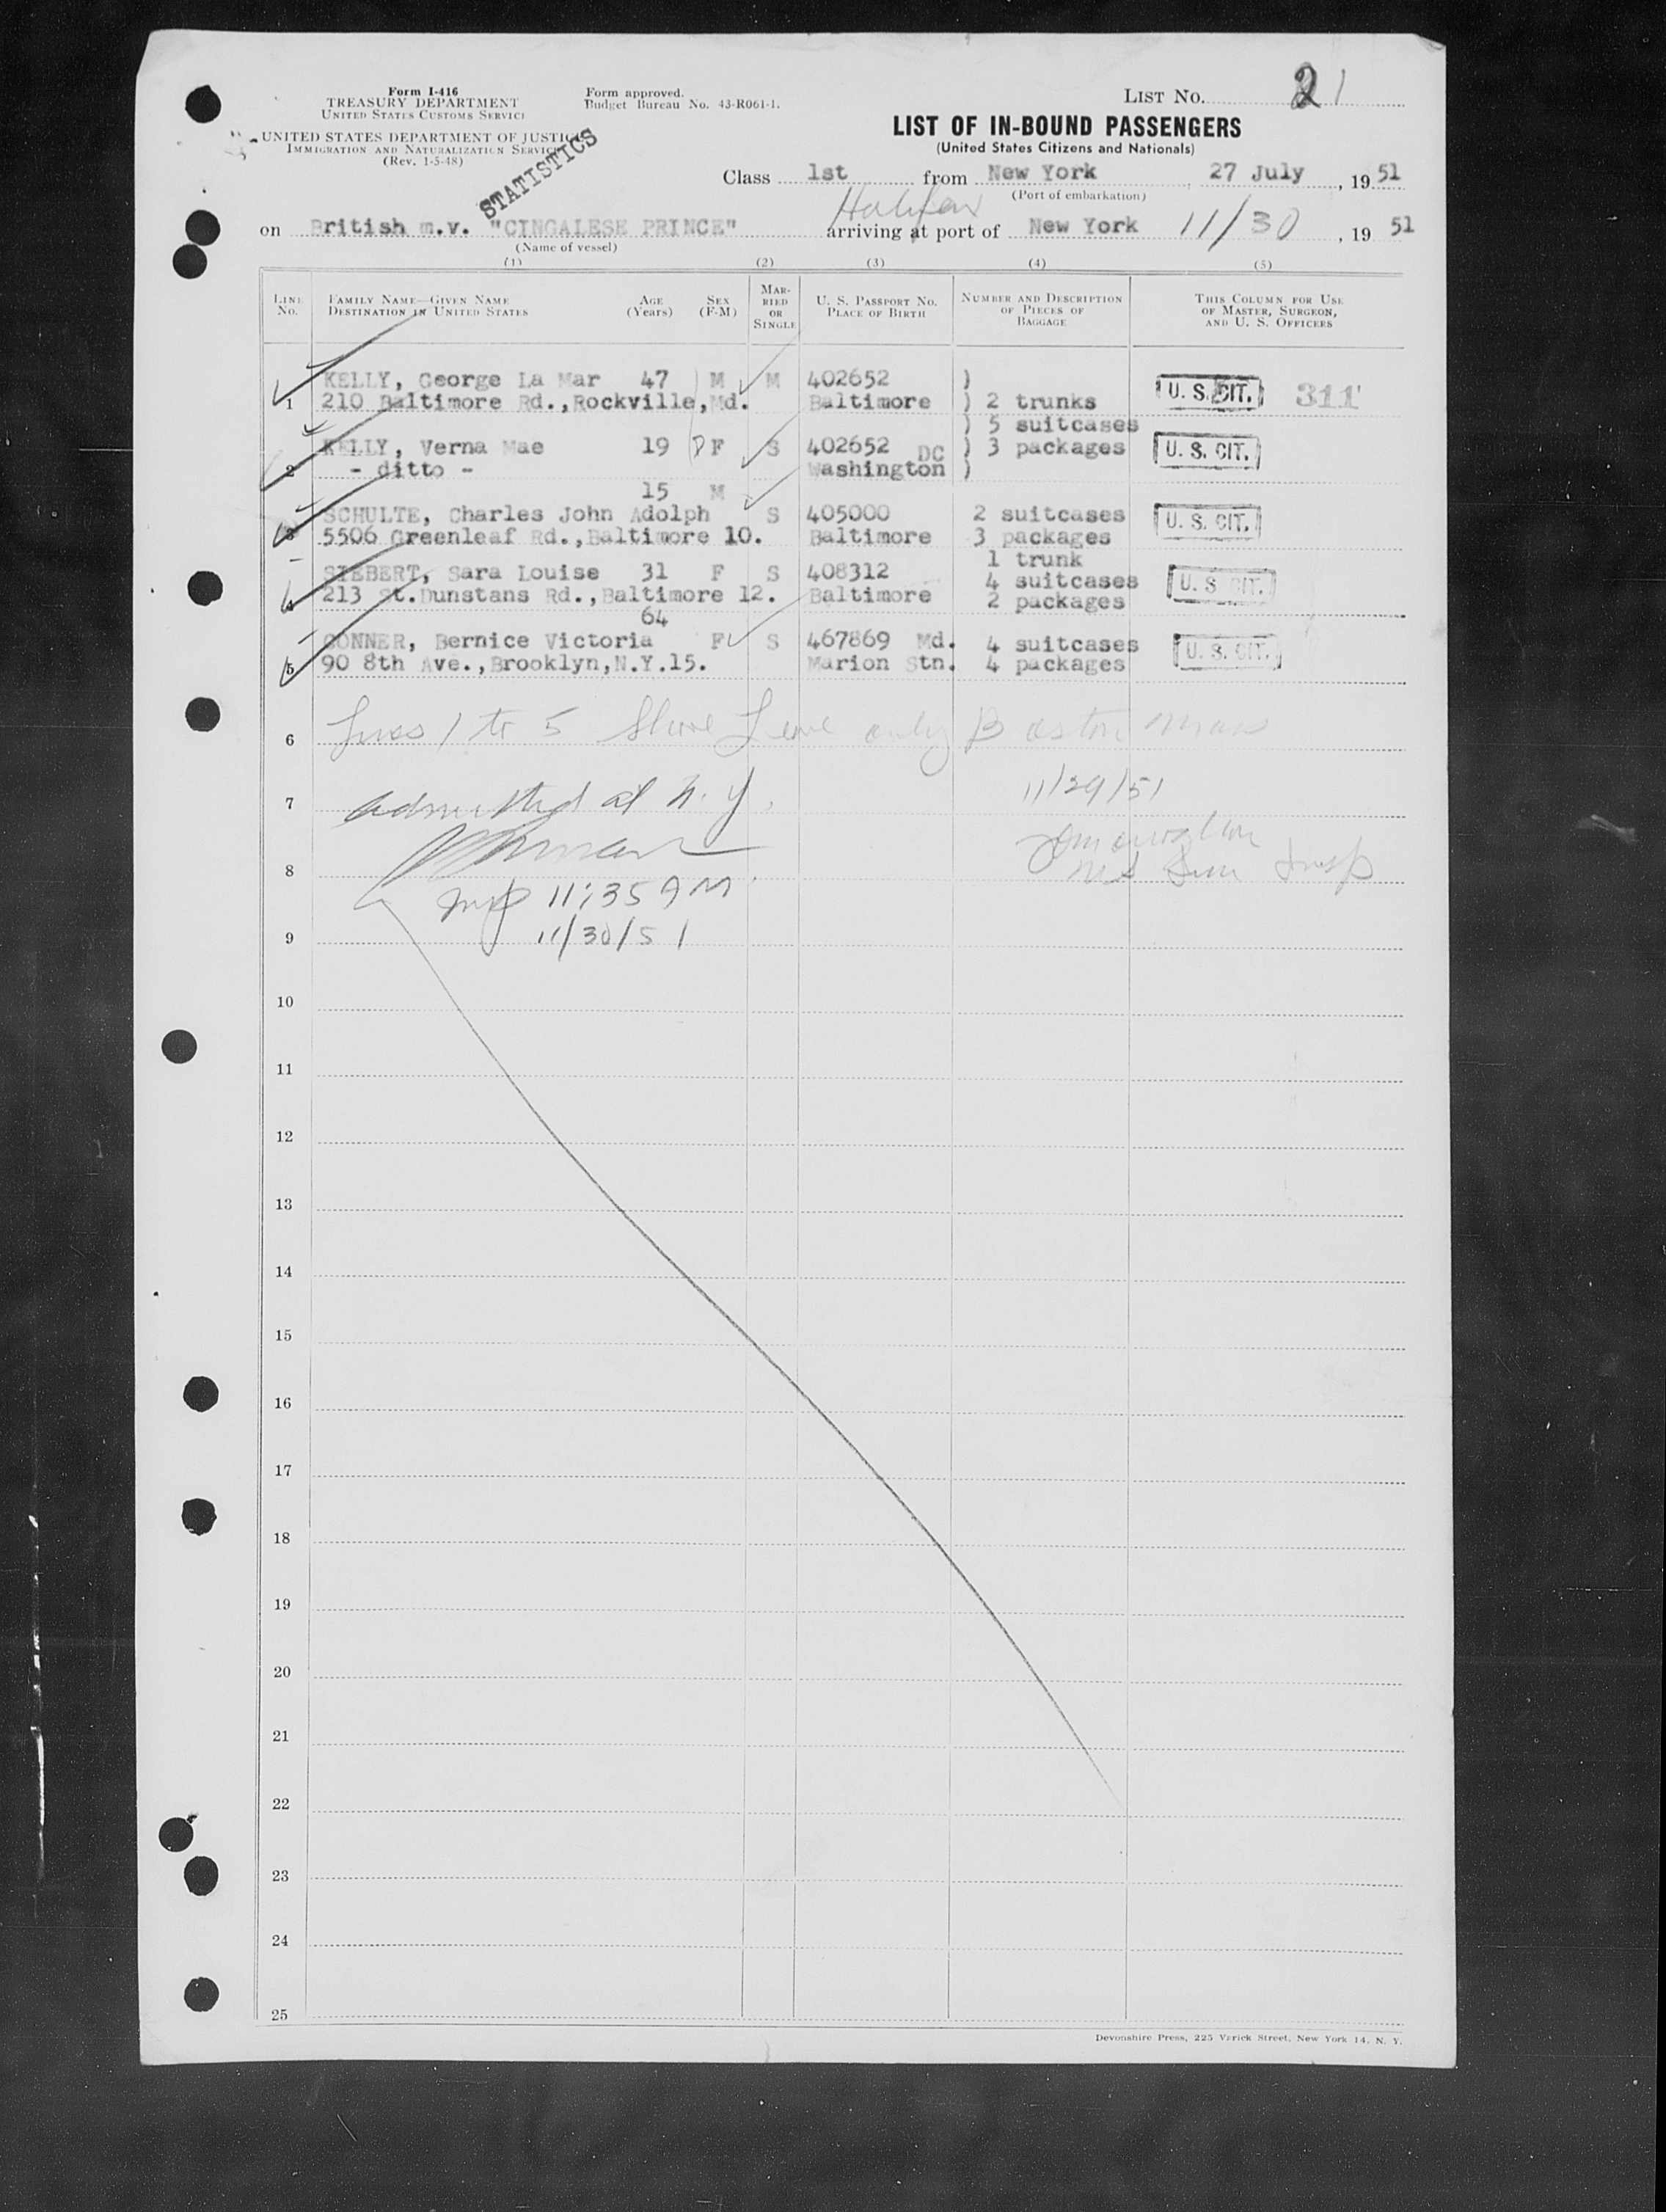 Form I-416
TREASURY DEPARTMENT
UNITED STATES CUSTOMS SERVICE
UNITED STATES DEPARTMENT OF JUSTICE
IMMIGRATION AND NATURALIZATION SERVICE
(Rev. 1-5-48)
Form approved.
Budget Bureau No. 43-R061-1.
STATISTICS
LIST NO. 1
LIST OF IN-BOUND PASSENGERS
(United States Citizens and Nationals)
Class 1st from New York, 27 July, 19 51
(Port of embarkation)
Halifax
on British m.v. "CINGALESE PRINCE" arriving at port of New York 11/30, 19 51
(Name of vessel)
(1) (2) (3) (4) (5)
LINE NO. FAMILY NAME—GIVEN NAME DESTINATION IN UNITED STATES AGE (Years) SEX (F-M) MARRIED OR SINGLE U. S. PASSPORT NO. PLACE OF BIRTH NUMBER AND DESCRIPTION OF PIECES OF BAGGAGE THIS COLUMN FOR USE OF MASTER, SURGEON, AND U. S. OFFICERS
KELLY, George La Mar 47 M M 402652 )
1 210 Baltimore Rd.,Rockville,Md. Baltimore ) 2 trunks U. S. CIT. 311
) 5 suitcases
KELLY, Verna Mae 19 F S 402652 DC ) 3 packages U. S. CIT.
2 - ditto - Washington )
15 M
SCHULTE, Charles John Adolph S 405000 2 suitcases U. S. CIT.
3 5506 Greenleaf Rd.,Baltimore 10. Baltimore 3 packages
1 trunk
SIEBERT, Sara Louise 31 F S 408312 4 suitcases U. S. CIT.
4 213 St.Dunstans Rd.,Baltimore 12. Baltimore 2 packages
64
CONNER, Bernice Victoria F S 467869 Md. 4 suitcases U. S. CIT.
5 90 8th Ave.,Brooklyn,N.Y.15. Marion Stn. 4 packages
6 Lines 1 to 5 Shore Leave only Boston Mass
7 admitted at N.Y. 11/29/51
8 Insp 11:35 AM Insp
9 11/30/51
10
11
12
13
14
15
16
17
18
19
20
21
22
23
24
25
Devonshire Press, 225 Varick Street, New York 14, N. Y.